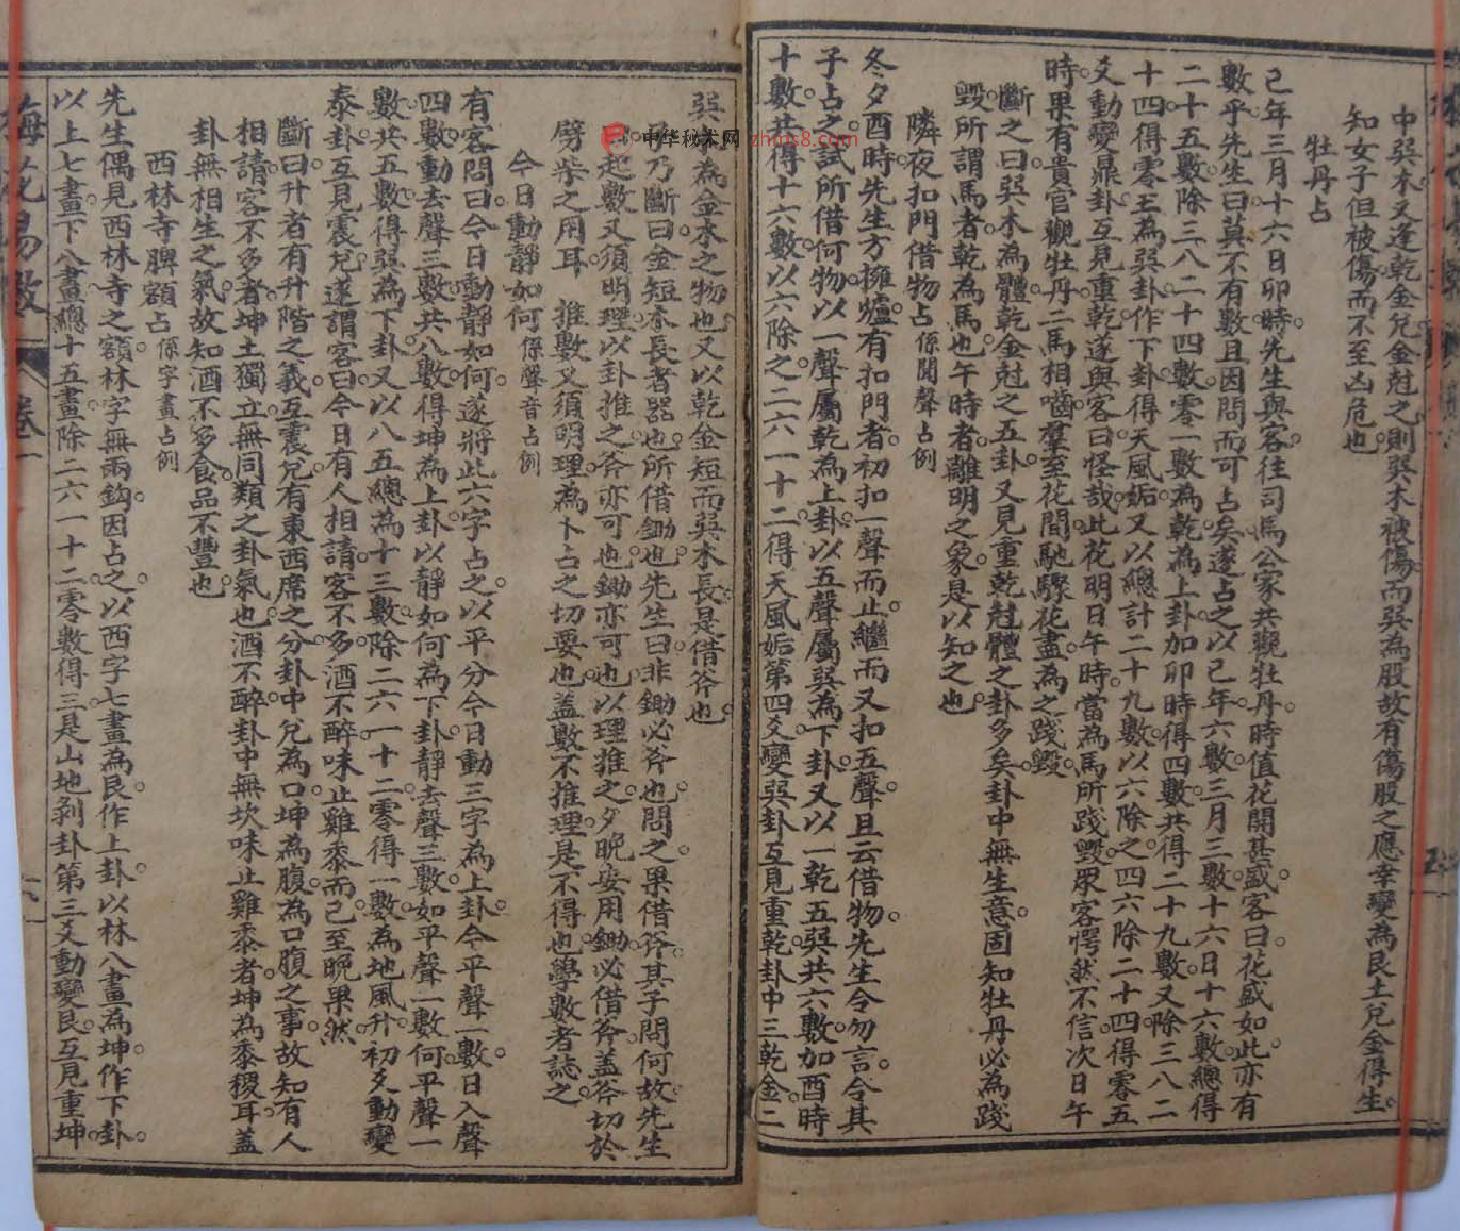 中巽木又逢乾金兌金尅之則巽木被傷而巽為股故有傷股之應幸變為艮土兌金得生
知女子但被傷而不至凶危也
牡丹占
己年三月十六日卯時先生與客往司馬公家共觀牡丹時值花開甚盛客曰花盛如此亦有
數乎先生曰莫不有數且因問而可占矣遂占之以己年六數三月三數十六日十六數總得
二十五數除三八二十四數零一數為乾為上卦加卯時得四數共得二十九數又除三八二
十四得零五為巽卦作下卦得天風姤又以總計二十九數以六除之四六除二十四得零五
爻動變鼎卦互見重乾遂與客曰怪哉此花明日午時當為馬所踐毀眾客愕然不信次日午
時果有貴官觀牡丹二馬相嚙羣至花間馳驟花盡為之踐毀
斷之曰巽木為體乾金尅之五卦又見重乾尅體之卦多矣卦中無生意固知牡丹必為踐
毀所謂馬者乾為馬也午時者離明之象是以知之也
隣夜扣門借物占係聞聲占例
冬夕酉時先生方擁爐有扣門者初扣一聲而止繼而又扣五聲且云借物先生令勿言令其
子占之試所借何物以一聲屬乾為上卦以五聲屬巽為下卦又以一乾五巽共六數加酉時
十數共得十六數以六除之二六一十二得天風姤第四爻變巽卦互見重乾卦中三乾金二
巽木為金木之物也又以乾金短而巽木長是借斧也
乃斷曰金短木長者器也所借鋤也先生曰非鋤必斧也問之果借斧其子問何故先生
起數又須明理以卦推之斧亦可也鋤亦可也以理推之夕晚安用鋤必借斧蓋斧切於
劈柴之用耳 推數又須明理為卜占之切要也蓋數不推理是不得也學數者誌之
今日動靜如何係聲音占例
有客問曰今日動靜如何遂將此六字占之以平分今日動三字為上卦今平聲一數日入聲
四數動去聲三數共八數得坤為上卦以靜如何為下卦靜去聲三數如平聲一數何平聲一
數共五數得巽為下卦又以八五總為十三數除二六一十二零得一數為地風升初爻動變
泰卦互見震兌遂謂客曰今日有人相請客不多酒不醉味止雞黍而已至晚果然
斷曰升者有升階之義互震兌有東西席之分卦中兌為口坤為腹為口腹之事故知有人
相請客不多者坤土獨立無同類之卦氣也酒不醉卦中無坎味止雞黍者坤為黍稷耳蓋
卦無相生之氣故知酒不多食品不豐也
西林寺牌額占係字畫占例
先生偶見西林寺之額林字無兩鈎因占之以西字七畫為艮作上卦以林八畫為坤作下卦
以上七畫下八畫總十五畫除二六一十二零數得三是山地剝卦第三爻動變艮互見重坤
梅花易數
卷一
中华秘术网 zhms8.com